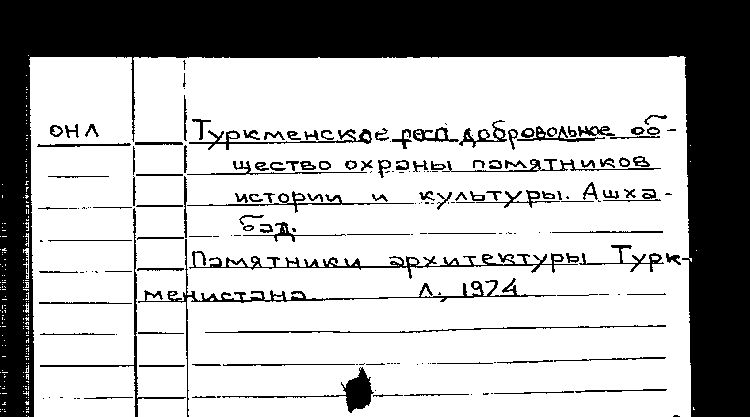 ОНЛ
Туркменское респ. добровольное об-
щество охраны памятников
истории и культуры. Ашха-
бад.
Памятники архитектуры Турк-
менистана Л., 1974